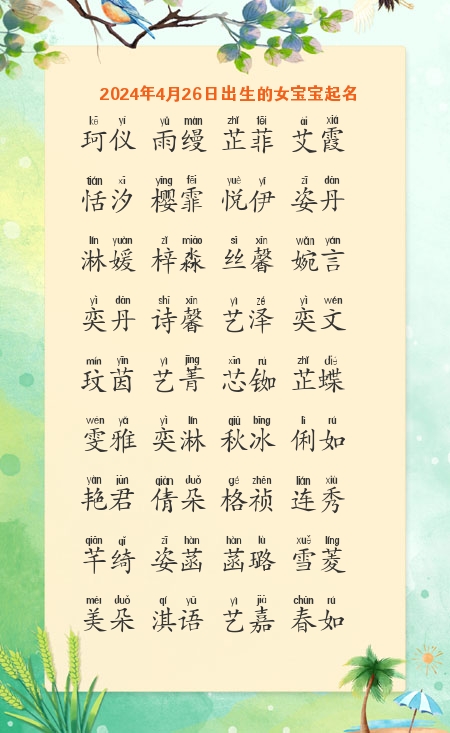 2024年4月26日出生的女宝宝起名
kē yí yǔ màn zhǐ fēi ài xiá
珂仪 雨缦 芷菲 艾霞
tián xī yīng fēi yuè yī zī dān
恬汐 樱霏 悦伊 姿丹
lín yuàn zǐ miǎo sī xīn wǎn yán
淋媛 梓淼 丝馨 婉言
yì dān shī xīn yì zé yì wén
奕丹 诗馨 艺泽 奕文
mín yīn yì jīng xīn rú zhǐ dié
玟茵 艺菁 芯铷 芷蝶
wén yǎ yì lín qiū bīng lì rú
雯雅 奕淋 秋冰 俐如
yàn jūn qiàn duǒ gé zhēn lián xiù
艳君 倩朵 格祯 连秀
qiān qǐ zī hàn hàn lù xuě líng
芊绮 姿菡 菡璐 雪菱
měi duǒ qí yǔ yì jiā chūn rú
美朵 淇语 艺嘉 春如